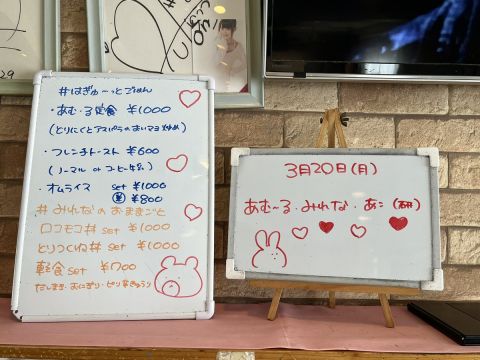 #はぎゅ〜っとごはん
・あむ・る定食 ¥1000
(とりにくとアスパラのおいマヨ炒め)
・フレンチトースト ¥600
(ノーマル or コーヒー牛乳)
・オムライス set ¥1000
単 ¥800
#みれなのおままごと
ロコモコ丼 set ¥1000
とりつくね丼 set ¥1000
軽食 set ¥700
だしまき・おにぎり・ピリ辛きゅうり
3月20日(月)
あむ〜る・みれな・あこ(研)
29